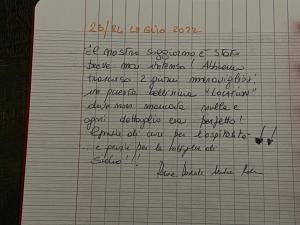 23/24 LUGLIO 2022
Il nostro soggiorno è stato
breve ma intenso! Abbiamo
trascorso 2 giorni meravigliosi
in questa bellissima "LOCATION"
dove non mancava nulla e
ogni dettaglio era perfetto!
Grazie di cuore per l'ospitalità
... e grazie per la bottiglia di
Sidro!!!